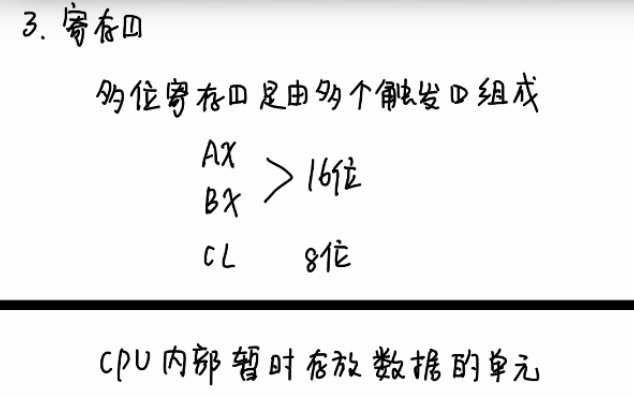 3. 寄存器
多位寄存器是由多个触发器组成
AX
BX > 16位
CL 8位
CPU内部暂时存放数据的单元